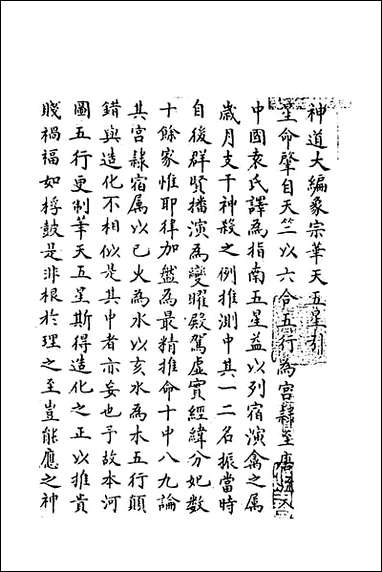 神道大編象宗華天五星引
星命肇自天竺以六合五行為宮隸至唐
中國袁氏譯為指南五星益以列宿演禽之属
歲月支干神殺之例推測中其一二名振當時
自後群賢播演為變曜殿駕虛實經緯分妃数
十餘家惟耶律加盤為最精推命十中八九論
其宮隸宿属以巳火為水以亥水為木五行顛
錯與造化不相似其中者亦妄也予故本河
圖五行更制華天五星斯得造化之正以推貴
賤禍福如桴鼓是非根於理之至豈能應之神